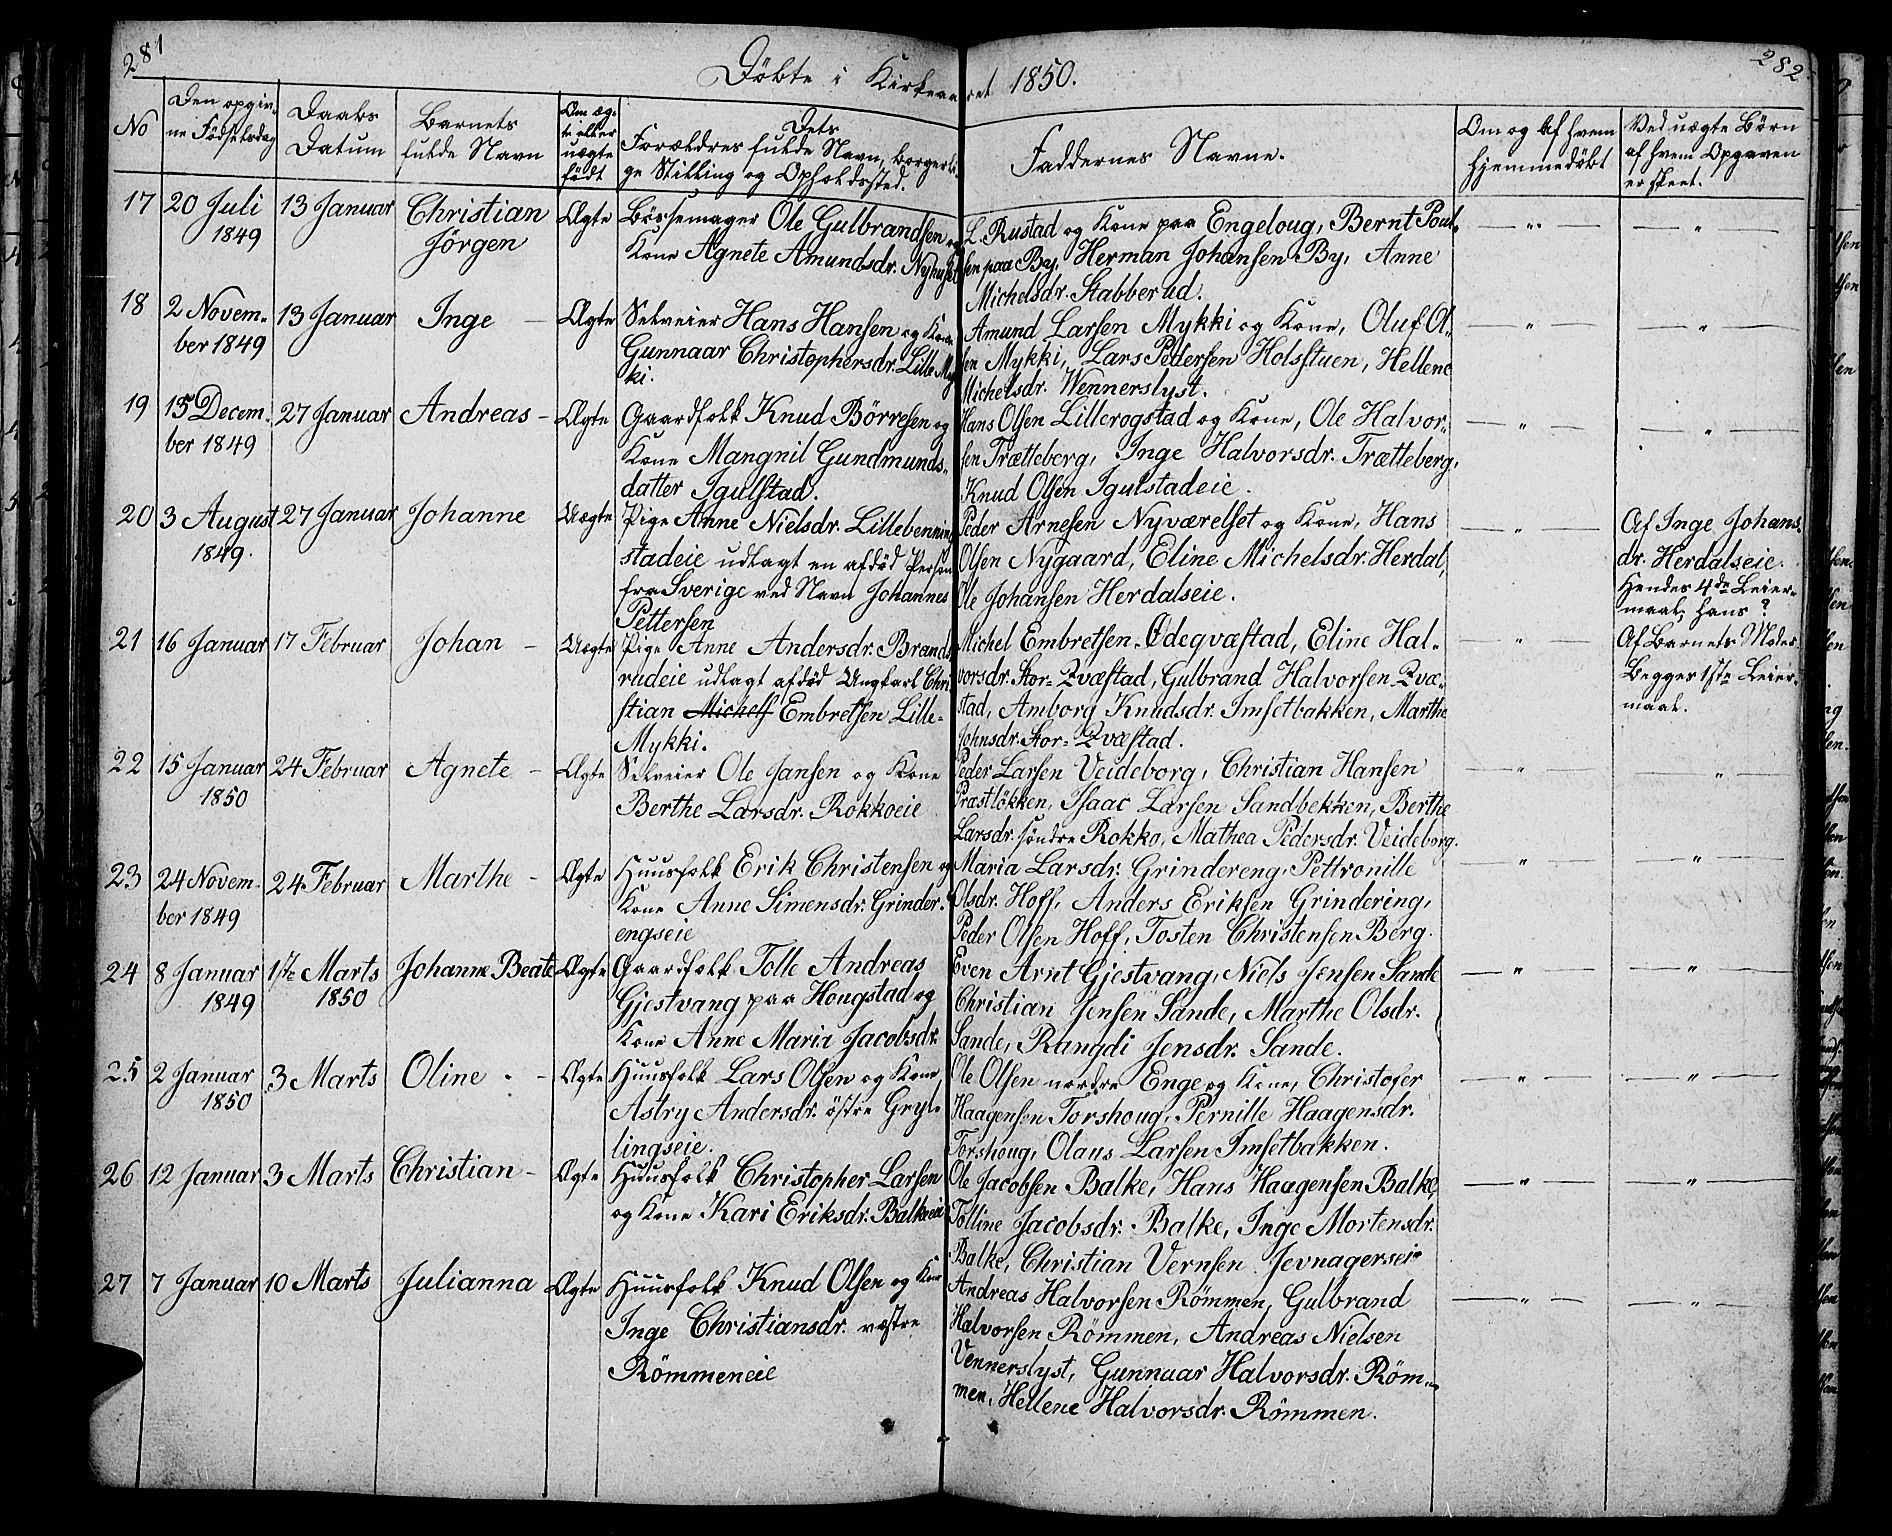 281
282
Döbte i Kirkeaaret 1850.
No
Den opgiv-
ne Födselsdag
Daabs
Datum
Barnets
fulde Navn
Om æg-
te eller
uægte
født
Dets
Forældres fulde Navn, borgerli-
ge Stilling og Opholdssted.
Faddernes Navne.
Om og af hvem
hjemmedöbt
Ved uægte Börn
af hvem Opgaven
er skeet.
17
20 Juli
1849
13 Januar
Christian
Jörgen
Ægte
Börsemager Ole Gulbrandsen og
Kone Agnete Amundsdr. Nyhuset
L. Rustad og Kone paa Engeloug, Bernt Poul-
sen paa By, Herman Johansen By, Anne
Michelsdr. Stabberud.
— „ —
— „ —
18
2 Novem-
ber 1849
13 Januar
Inge —
Ægte
Selveier Hans Hansen og Kone
Gunnaar Christophersdr. Lille Myk
ki.
Amund Larsen Mykki og Kone, Oluf Ol-
sen Mykki, Lars Pedersen Holsstuen, Hellene
Michelsdr. Wennerslyst.
— „ —
— „ —
19
15 Decem-
ber 1849
27 Januar
Andreas —
Ægte
Gaardfolk Knud Börresen og
Kone Mangnil Gundmunds-
datter Igulstad.
Hans Olsen Lillerogstad og Kone, Ole Halvor-
sen Trætteberg, Inge Halvorsdr. Trætteberg,
Knud Olsen Igulstadeie.
— „ —
— „ —
20
3 August
1849.
27 Januar
Johanne
Uægte
Pige Anne Nielsdr. Lillebenning
stadeie udlagt en afdöd Person
fra Sverige ved Navn Johannes
Pettersen
Peder Arnesen Nyværelset og Kone, Hans
Olsen Nygaard, Eline Michelsdr. Herdal,
Ole Johansen Herdalseie.
— „ —
Af Inge Johans-
dr. Herdalseie.
Hendes 4de Leier-
maal, hans ?
21
16 Januar
17 Februar
Johan —
Uægte
Pige Anne Andersdr. Brands
rudeie udlagt afdöd Ungkarl Chri
stian Michels Embretsen Lille-
Mykki.
Michel Embretsen Ödeqvæstad, Eline Hal-
vorsdr. Stor-Qvæstad, Gulbrand Halvorsen Qvæ-
stad, Amborg Knudsdr. Imsetbakken, Marthe
Johnsdr. Stor-Qvæstad.
— „ —
Af Barnets Moder
Begges 1ste Leier-
maal.
22
15 Januar
1850
24 Februar
Agnete —
Ægte
Selveier Ole Jansen og Kone
Berthe Larsdr. Rokkoeie
Peder Larsen Veideborg, Christian Hansen
Præstlökken, Isaac Larsen Sandbekken, Berthe
Larsdr. söndre Rokko, Mathea Pedersdr. Veideborg.
— „ —
— „ —
23
24 Novem-
ber 1849
24 Februar
Marthe —
Ægte
Huusfolk Erik Christensen og
Kone Anne Simensdr. Grinder-
engseie
Maria Larsdr. Grindereng, Pettronille
Olsdr. Hoff, Anders Eriksen Grindering,
Peder Olsen Hoff, Tosten Christensen Berg.
— „ —
— „ —
24
8 Januar
1849
1ste Marts
1850
Johanne Beate
Ægte
Gaardfolk Tolle Andreas
Gjestvang paa Hougstad og
Kone Anne Maria Jacobsdr.
Even Arnt Gjestvang, Niels Jensen Sande
Christian Jensen Sande, Marthe Olsdr.
Sande, Rangdi Jensdr. Sande.
— „ —
— „ —
25
2 Januar
1850
3 Marts
Oline . —
Ægte
Huusfolk Lars Olsen og Kone
Astry Andersdr. östre Gryl-
lingseie.
Ole Olsen nordre Enge og Kone, Christofer
Haagensen Torshoug, Pernille Haagensdr.
Torshoug, Olaus Larsen Imsetbakken.
— „ —
— „ —
26
12 Januar
3 Marts
Christian —
Ægte
Huusfolk Christopher Larsen
og Kone Kari Eriksdr. Balkeeie
Ole Jacobsen Balke, Hans Haagensen Balke,
Tolline Jacobsdr. Balke, Inge Mortensdr.
Balke, Christian Vernsen Jevnagerseie
— „ —
— „ —
27
7 Januar
10 Marts
Julianna
Ægte
Huusfolk Knud Olsen og Kone
Inge Christiansdr. væstre
Römmeneie
Andreas Halvorsen Römmen, Gulbrand
Halvorsen Römmen, Andreas Nielsen
Vennerslyst, Gunnuar Halvorsdr. Röm-
men, Hellene Halvorsdr. Römmen.
— „ —
— „ —